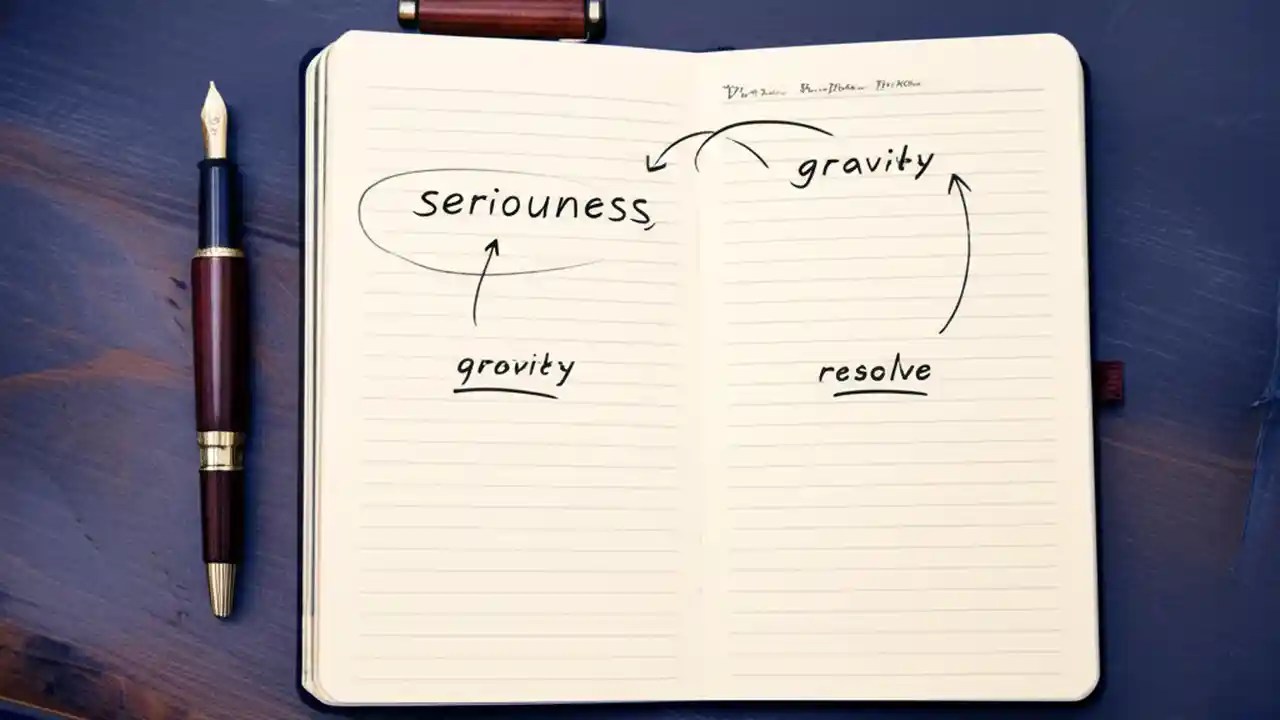 seriouness
gravity
gravity
resolve